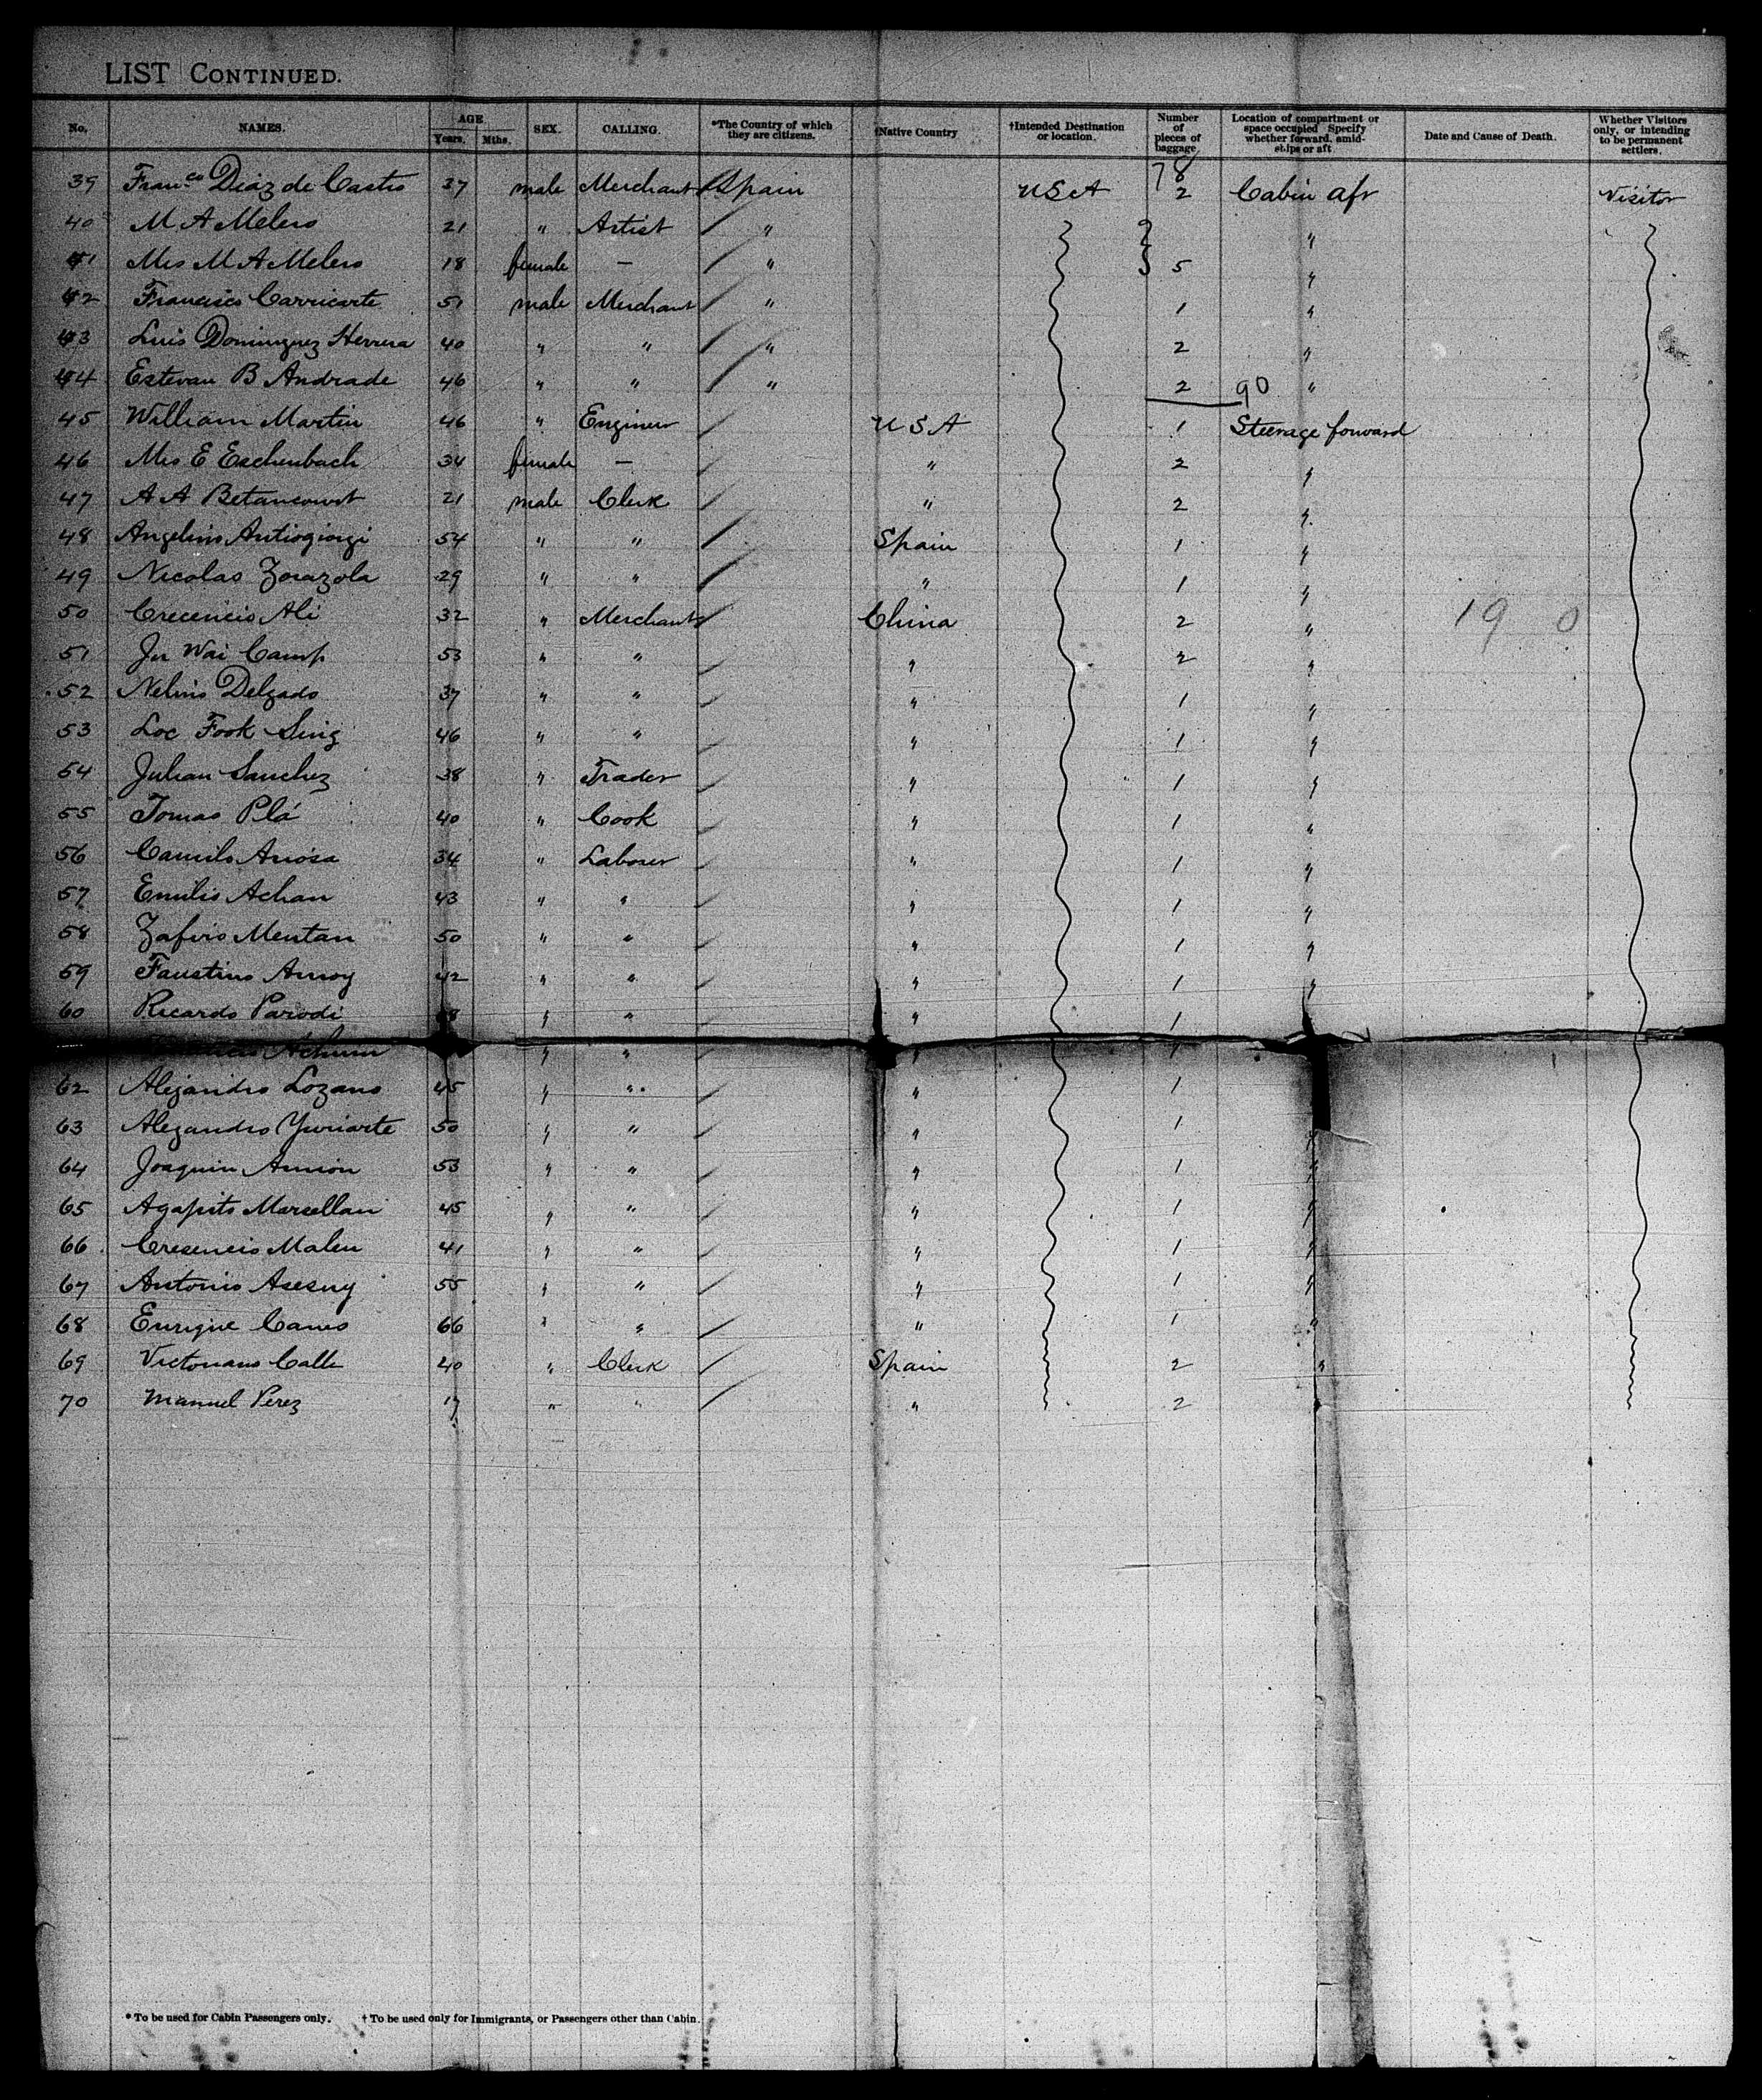 LIST CONTINUED.
No. NAMES. AGE Years. Mths. SEX. CALLING. *The Country of which they are citizens. †Native Country †Intended Destination or location. Number of pieces of baggage Location of compartment or space occupied Specify whether forward, amidships or aft Date and Cause of Death. Whether Visitors only, or intending to be permanent settlers.
78
39 Fran.co Diaz de Castro 37 male Merchant Spain USA 2 Cabin aft Visitor
40 M A Melero 21 " Artist " "
41 Mrs M A Melero 18 female — " 5 "
42 Francisco Carricarte 51 male Merchant " 1 "
43 Luis Dominguez Herrera 40 " " " 2 "
44 Estevan B Andrade 46 " " " 2 90 "
45 William Martin 46 " Engineer USA 1 Steerage forward
46 Mrs E Eschenbach 34 female — " 2 "
47 A A Betancourt 21 male Clerk " 2 "
48 Angelino Antiogiorgi 54 " " Spain 1 "
49 Nicolas Zorazola 29 " " " 1 "
50 Crecencio Ali 32 " Merchant China 2 " 19 0
51 Ju Wai Camp 53 " " " 2 "
52 Delgado 37 " " " 1 "
53 Loc Fook Sing 46 " " " 1 "
54 Julian Sanchez 38 " Trader " 1 "
55 Tomas Plá 40 " Cook " 1 "
56 Camilo 34 " Laborer " 1 "
57 Emilio Achan 43 " " " 1 "
58 Zafiro Mentan 50 " " " 1 "
59 Faustino Amoy 42 " " " 1 "
60 Ricardo Parodi 8 " " " 1
Achum " " " 1
62 Alejandro Lozano 45 " " " 1
63 Alejandro Yuriarte 50 " " " 1 "
64 Joaquin 53 " " " 1 "
65 Agapito Marcellan 45 " " " 1 "
66 Cresencio Malen 41 " " " 1 "
67 Antonio Asesuy 55 " " " 1 "
68 Enrique Canes 66 " " " 1 "
69 Victoriano Calle 40 " Clerk Spain 2 "
70 Manuel Perez 17 " " " 2 "
* To be used for Cabin Passengers only. † To be used only for Immigrants, or Passengers other than Cabin.